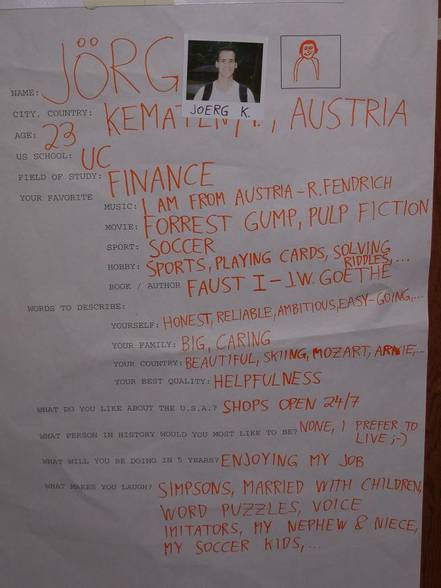 NAME: JÖRG
JOERG K.
CITY, COUNTRY: KEMATEN, AUSTRIA
AGE: 23
US SCHOOL: UC
FIELD OF STUDY: FINANCE
YOUR FAVORITE
MUSIC: I AM FROM AUSTRIA - R. FENDRICH
MOVIE: FORREST GUMP, PULP FICTION
SPORT: SOCCER
HOBBY: SPORTS, PLAYING CARDS, SOLVING
RIDDLES,...
BOOK / AUTHOR FAUST I - J.W. GOETHE
WORDS TO DESCRIBE:
YOURSELF: HONEST, RELIABLE, AMBITIOUS, EASY-GOING,...
YOUR FAMILY: BIG, CARING
YOUR COUNTRY: BEAUTIFUL, SKIING, MOZART, ARNIE,...
YOUR BEST QUALITY: HELPFULNESS
WHAT DO YOU LIKE ABOUT THE U.S.A.? SHOPS OPEN 24/7
WHAT PERSON IN HISTORY WOULD YOU MOST LIKE TO BE? NONE, I PREFER TO
LIVE ;-)
WHAT WILL YOU BE DOING IN 5 YEARS? ENJOYING MY JOB
WHAT MAKES YOU LAUGH? SIMPSONS, MARRIED WITH CHILDREN,
WORD PUZZLES, VOICE
IMITATORS, MY NEPHEW & NIECE,
MY SOCCER KIDS,...